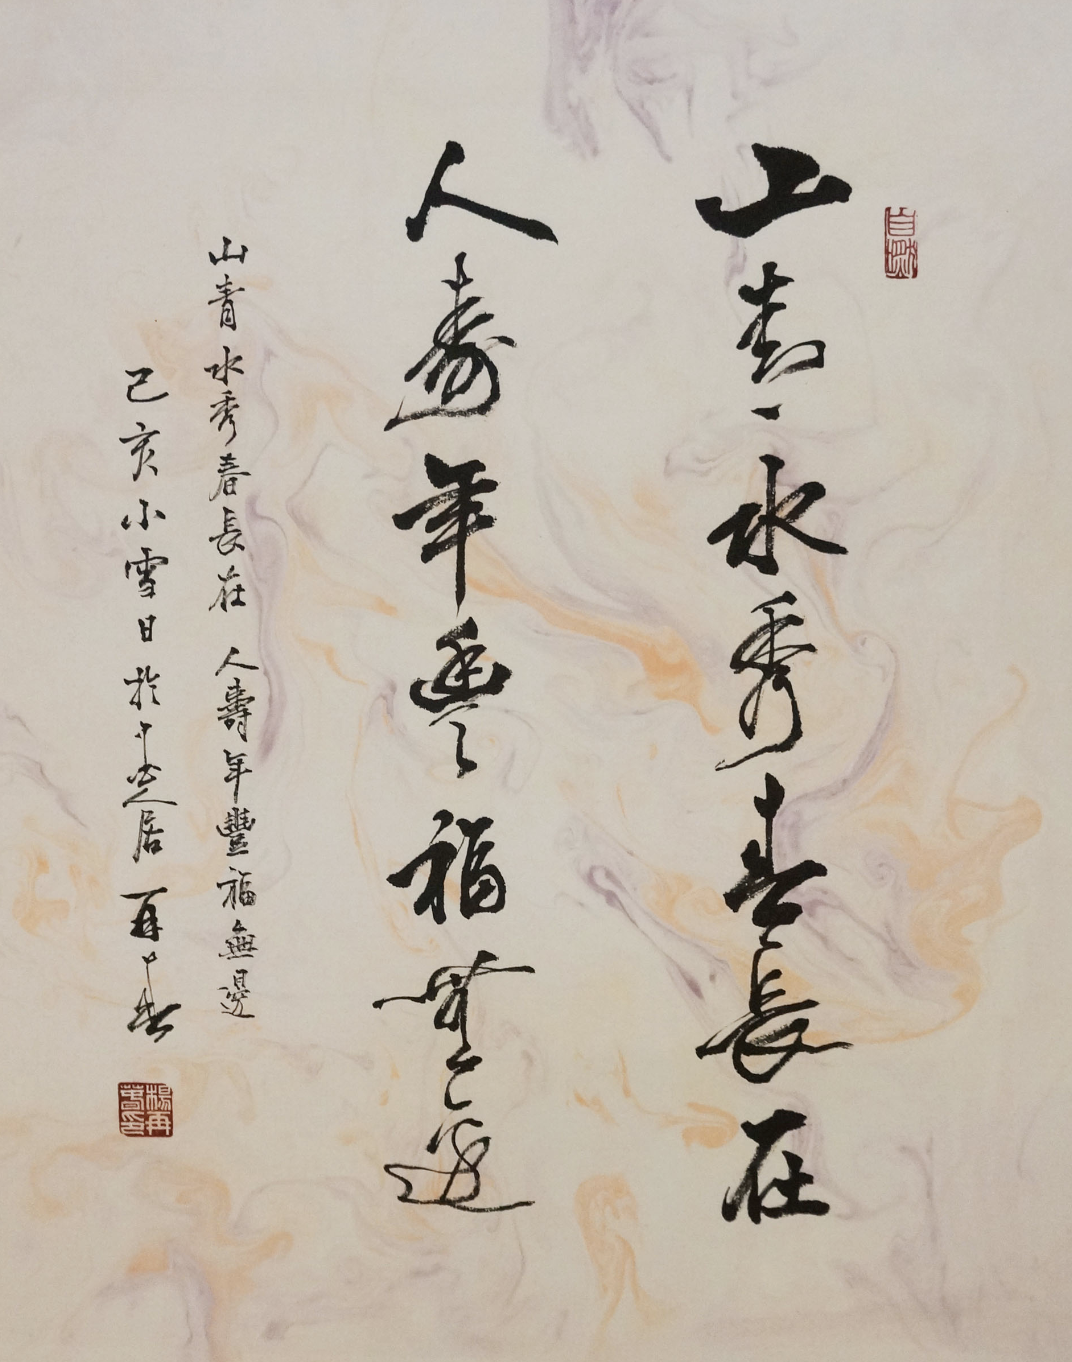 自在
山青水秀春長在
人壽年豐福無邊
山青水秀春長在 人壽年豐福無邊
己亥小雪日於中芝居 再春
楊再春印